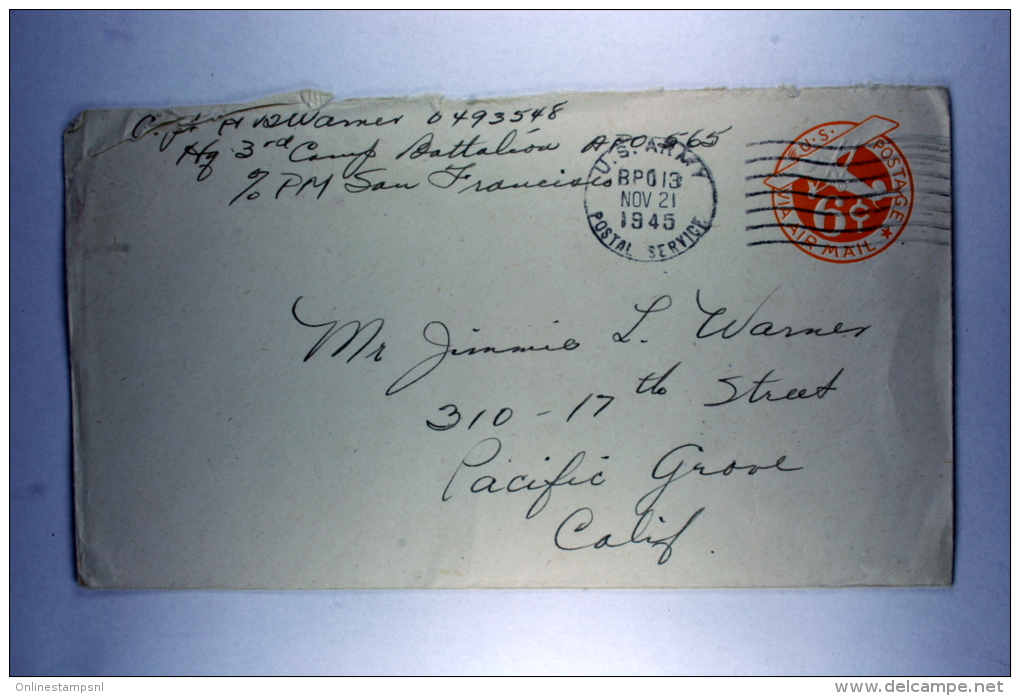 Capt H B Warner 0493548
Hq 3rd Camp Battalion APO 565
% PM San Francisco
U.S. ARMY
BPO 13
NOV 21
1945
POSTAL SERVICE
U.S. POSTAGE
6¢
VIA AIR MAIL
Mr Jimmie L. Warner
310 - 17th Street
Pacific Grove
Calif.
Onlinestampsnl
http://www.delcampe.net